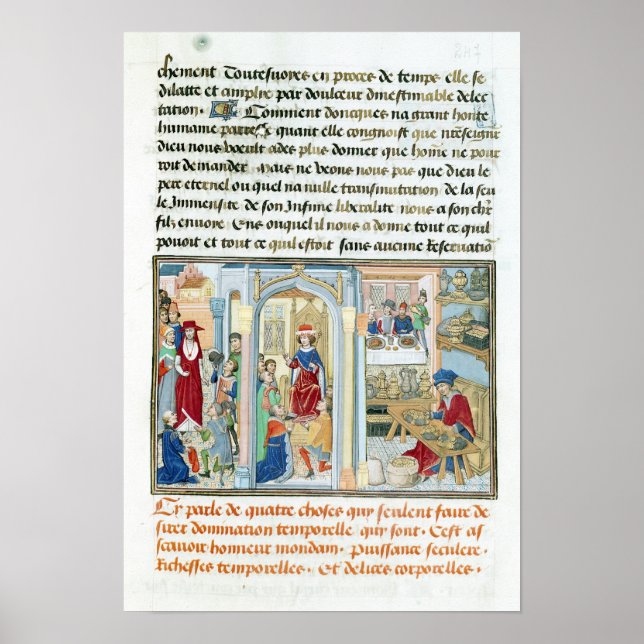 chement Toutesuoyes en proces de temps elle se
dilatte et amplie par doulceur dinestimable delec
tation. Comment doncques na grant honte
humame quant elle congnoist que
dieu nous voeult ades plus donner que homme ne pour
roit demander. Mais ne veons nous pas que dieu le
pere eternel ou quel na nulle transmutation. de la seu
le Immensite de son Infinie liberalite nous a son
filz enuoye. Ens ouquel il nous a donne tout ce quil
pouoit et tout ce quil estoit sans aucune Reseruatio
Cy parle de quatre choses quy seulent faire de
sirer domination temporelle quy sont. Cest as
scauoir honneur mondain. Puissance seculere.
Richesses temporelles. Et delices corporelles.